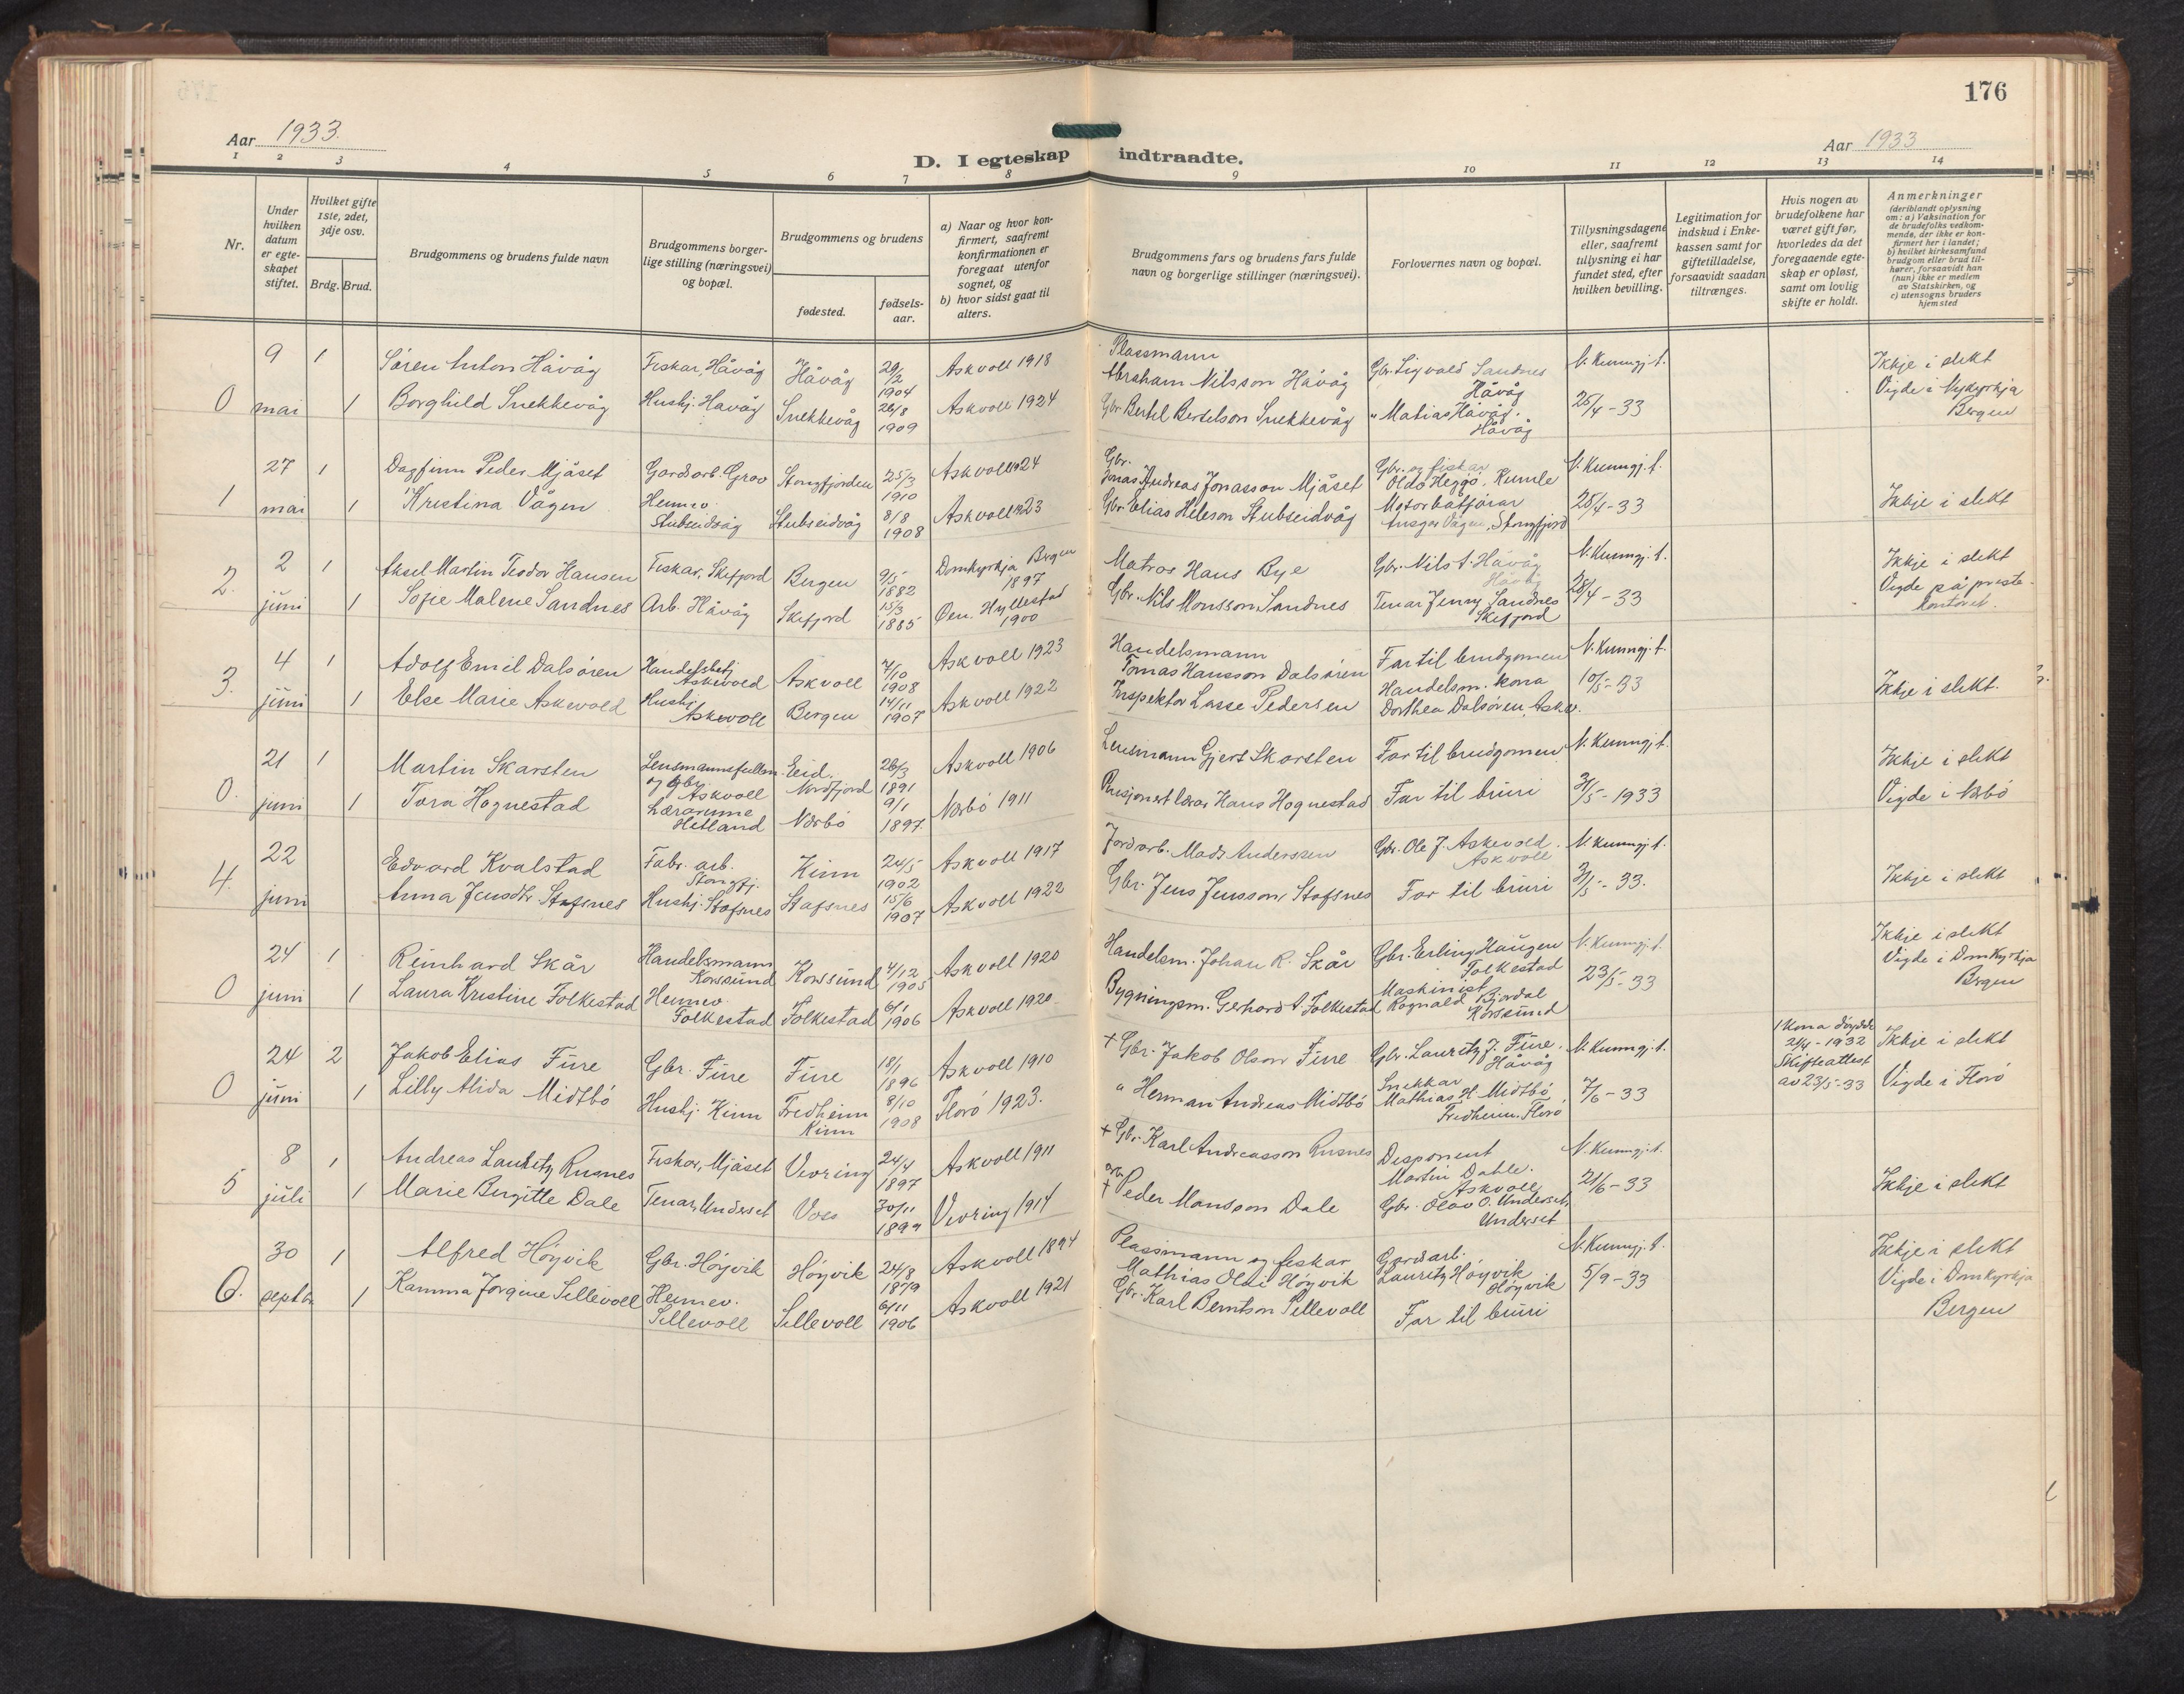 176
Aar 1933.
Aar 1933
D. I egteskap indtraadte.
1 2 3 4 5 6 7 8 9 10 11 12 13 14
Nr.
Under hvilken datum er egteskapet stiftet.
Hvilket gifte 1ste, 2det, 3dje osv.
Brdg. Brud.
Brudgommens og brudens fulde navn
Brudgommens borgerlige stilling (næringsvei) og bopæl.
Brudgommens og brudens
fødested.
fødselsaar.
a) Naar og hvor konfirmert, saafremt konfirmationen er foregaat utenfor sognet, og
b) hvor sidst gaat til alters.
Brudgommens fars og brudens fars fulde navn og borgerlige stillinger (næringsvei).
Forlovernes navn og bopæl.
Tillysningsdagene eller, saafremt tillysning ei har fundet sted, efter hvilken bevilling.
Legitimation for indskud i Enkekassen samt for giftetilladelse, forsaavidt saadan tiltrænges.
Hvis nogen av brudefolkene har været gift før, hvorledes da det foregaaende egteskap er opløst, samt om lovlig skifte er holdt.
Anmerkninger
(deriblandt oplysning om: a) Vaksination for de brudefolks vedkommende, der ikke er konfirmert her i landet; b) hvilket kirkesamfund brudgom eller brud tilhører, forsaavidt han (hun) ikke er medlem av Statskirken, og c) utensogns bruders hjemsted
0 9 mai 1 Søren Anton Håvåg Fiskar, Håvåg Håvåg 29/2 1904 Askvoll 1918 Plassmann Abraham Nilsson Håvåg Gbr. Sigvald Sandnes Håvåg N. Kunngj. t. Ikkje i slekt
1 Borghild Snekkevåg Hushj. Håvåg Snekkevåg 26/8 1909 Askvoll 1924 Gbr. Bertel Bertelson Snekkevåg " Matias Håvåg. Håvåg 25/4-33 Vigde i Nykyrkja Bergen
1 27 mai 1 Dagfinn Peder Mjåset Gardsarb. Grov Stongfjorden 25/3 1910 Askvoll 1924 Gbr. Jonas Andreas Jonasson Mjåset Gbr. og fiskar Oldo Heggø, Kumle N. Kunngj. t.
1 Kristina Vågen Heimev. Stubseidvåg Stubseidvåg 8/8 1908 Askvoll 1923 Gbr. Elias Heleson Stubseidvåg Motorbåtførar Ansgar Vågen, Stongfjord 25/4-33 Ikkje i slekt
2. 2 juni 1 Aksel Martin Teodor Hansen Fiskar, Skifjord Bergen 9/5 1882 Domkyrkja Bergen 1897 Matros Hans Bye Gbr. Nils A. Håvåg Håvåg N. Kunngj. t. Ikkje i slekt
1 Sofie Malene Sandnes Arb. Håvåg Skifjord 15/3 1885 Øen. Hyllestad 1900 Gbr. Nils Monsson Sandnes Tenar Jenny Sandnes Skifjord 28/4-33 Vigde på prestekontoret.
3. 4 juni 1 Adolf Emil Dalsøren Handelsbetj Askevold Askvoll 7/10 1908 Askvoll 1923 Handelsmann Tomas Hansson Dalsøren Far til brudgomen N. Kunngj. t.
1 Else Marie Askevold Hushj. Askevoll Bergen 14/11 1907 Askvoll 1922 Inspektør Lasse Pedersen Handelsm. kona Dorthea Dalsøren, Askv. 10/5-33 Ikkje i slekt.
0. 21 juni 1 Martin Skarsten Lensmannsfullm. og gbr. Askvoll Eid. Nordfjord 26/3 1891 Askvoll 1906 Lensmann Gjert Skarsten Far til brudgomen N. Kunngj. t. Ikkje i slekt
1 Tora Hognestad Lærarinne Hetland Nærbø 9/1 1897. Nærbø 1911 Pensjonert lærar Hans Hognestad Far til bruri 31/5-1933 Vigde i Nærbø
4. 22 juni Edvard Kvalstad Fabr. arb. Stongfj. Kinn 24/5 1902 Askvoll 1917 Jordarb. Mads Anderssen Gbr. Ole J. Askevold. Askvoll N. Kunngj. t.
Anna Jensdtr Stafsnes Hushj. Stafsnes Stafsnes 15/6 1907 Askvoll 1922 Gbr. Jens Jensson Stafsnes Far til bruri 31/5-33. Ikkje i slekt
0 24 juni 1 Reinhard Skår Handelsmann Korssund Korssund 4/12 1905 Askvoll 1920 Handelsm. Johan R. Skår Gbr. Erling Haugen Folkestad N. Kunngj. t. Ikkje i slekt
1 Laura Kristine Folkestad Heimev. Folkestad Folkestad 6/1 1906 Askvoll 1920 Bygningsm. Gerhard A. Folkestad Maskinist Ragnald Bjordal Korssund 23/5-33 Vigde i Domkyrkja Bergen
0 24 juni 2 Jakob Elias Fure Gbr. Fure Fure 18/1 1896 Askvoll 1910 + Gbr. Jakob Olson Fure Gbr. Lauritz J. Fure. Håvåg N. Kunngj. t. 1 kona døydde 21/4-1932 Skifteattest av 23/5-33 Ikkje i slekt
1 Lilly Alida Midtbø Hushj. Kinn Fredheim Kinn 8/10 1908 Florø 1923. " Herman Andreas Midtbø Snekkar Mathias H. Midtbø, Fredheim. Florø 7/6-33 Vigde i Florø
5 8 juli 1 Andreas Lauritz Rusnes Fiskar, Mjåset Vevring 24/4 1897 Askvoll 1911 + Gbr. Karl Andreasson Rusnes Disponent Martin Dahle. Askvoll N. Kunngj. t.
1 Marie Birgitte Dale Tenar, Underset Voss 30/11 1899 Vevring 1914 + Peder Monsson Dale Gbr. Olav O. Underset, Underset 21/6-33 Ikkje i slekt
6. 30 septbr 1 Alfred Høyvik Gbr. Høyvik Høyvik 24/8 1879 Askvoll 1894 Plassmann og fiskar Mathias Olai Høyvik Gardsarb. Lauritz Høyvik Høyvik N. Kunngj. t. Ikkje i slekt
1 Kamma Jørgine Sellevoll Heimev. Sellevoll Sellevoll 6/11 1906 Askvoll 1921 Gbr. Karl Berntson Sellevoll Far til bruri 5/9-33 Vigde i Domkyrkja Bergen